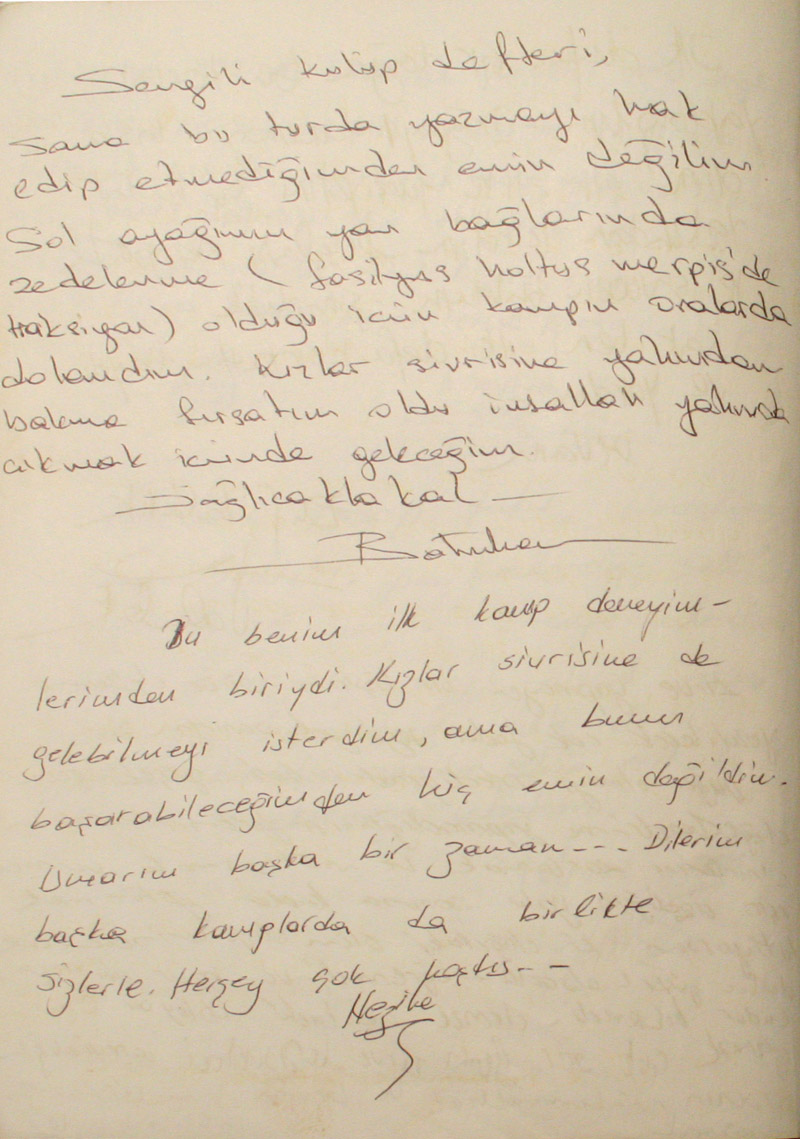 Sevgili kulüp defteri,
Sana bu turda yazmayı hak
edip etmediğimden emin değilim.
Sol ayağımın yan bağlarında
zedelenme ( fasilyus holtus merpis'de
traksiyon) olduğu için kampın oralarda
dolandım. Kızlar sivrisine yakından
bakma fırsatım oldu inşallah yakında
çıkmak içinde geleceğim.
Sağlıcakla kal
Batuhan
Bu benim ilk kamp deneyim-
lerimden biriydi. Kızlar sivrisine de
gelebilmeyi isterdim, ama bunu
başarabileceğimden hiç emin değildim.
Umarım başka bir zaman... Dilerim
başka kamplarda da birlikte
sizlerle. Herşey çok hoştu..